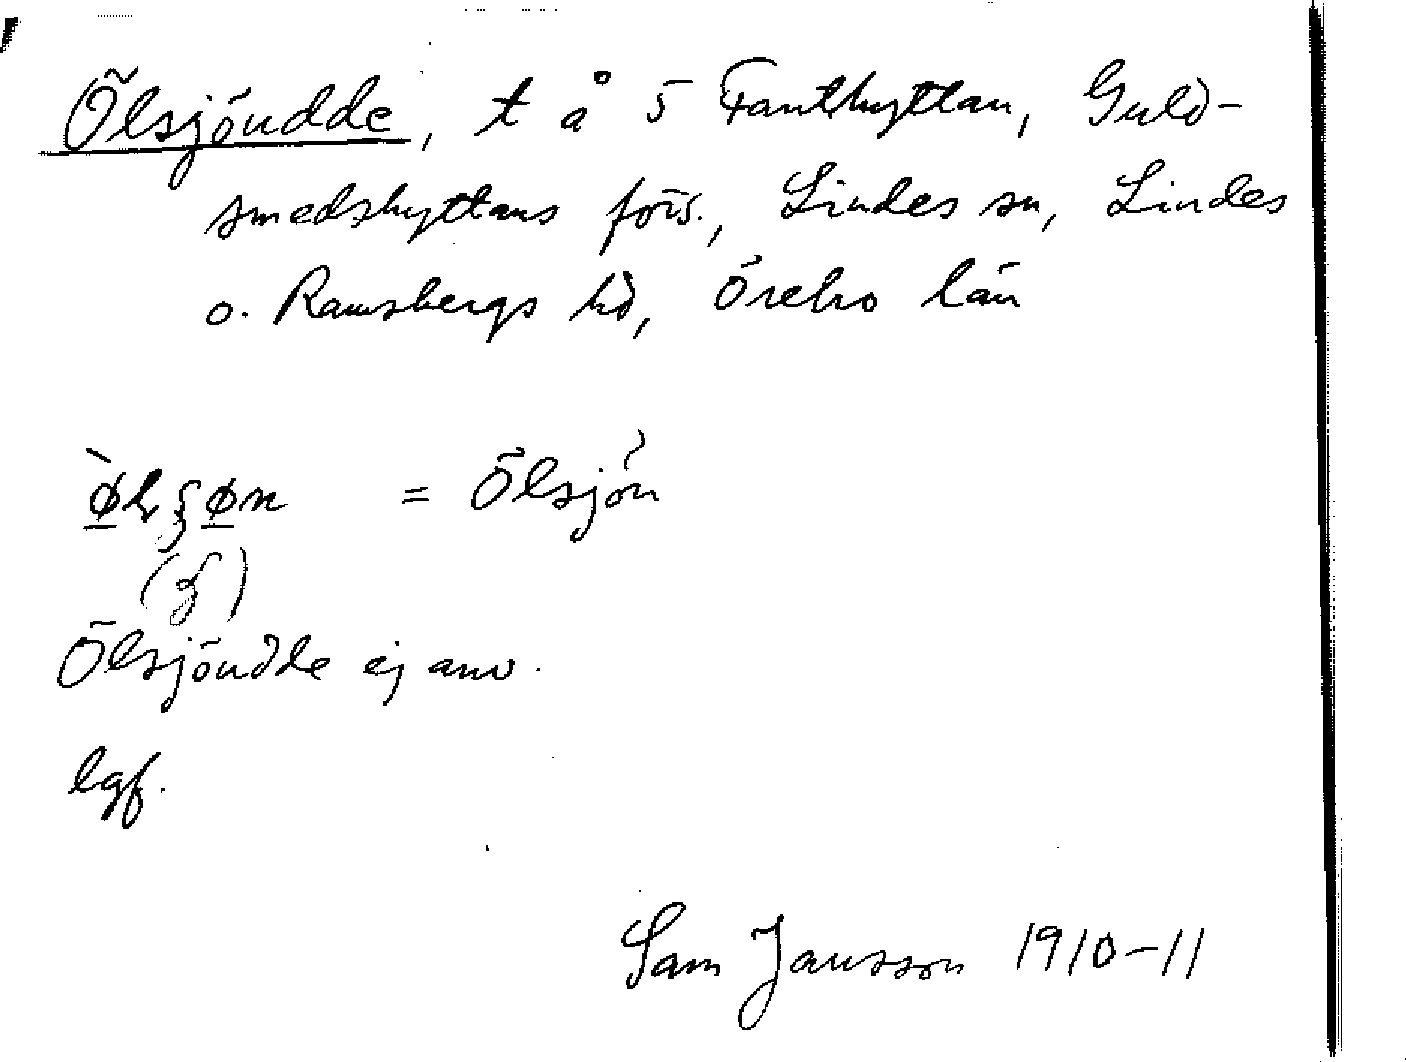 Ölsjöudde, t å 5 Fanthyttan, Guld-
smedshyttans förs., Lindes sn, Lindes
o. Ramsbergs hd, Örebro län
= Ölsjön
Ölsjöudde ej anv.
lgf.
Sam Jansson 1910-11